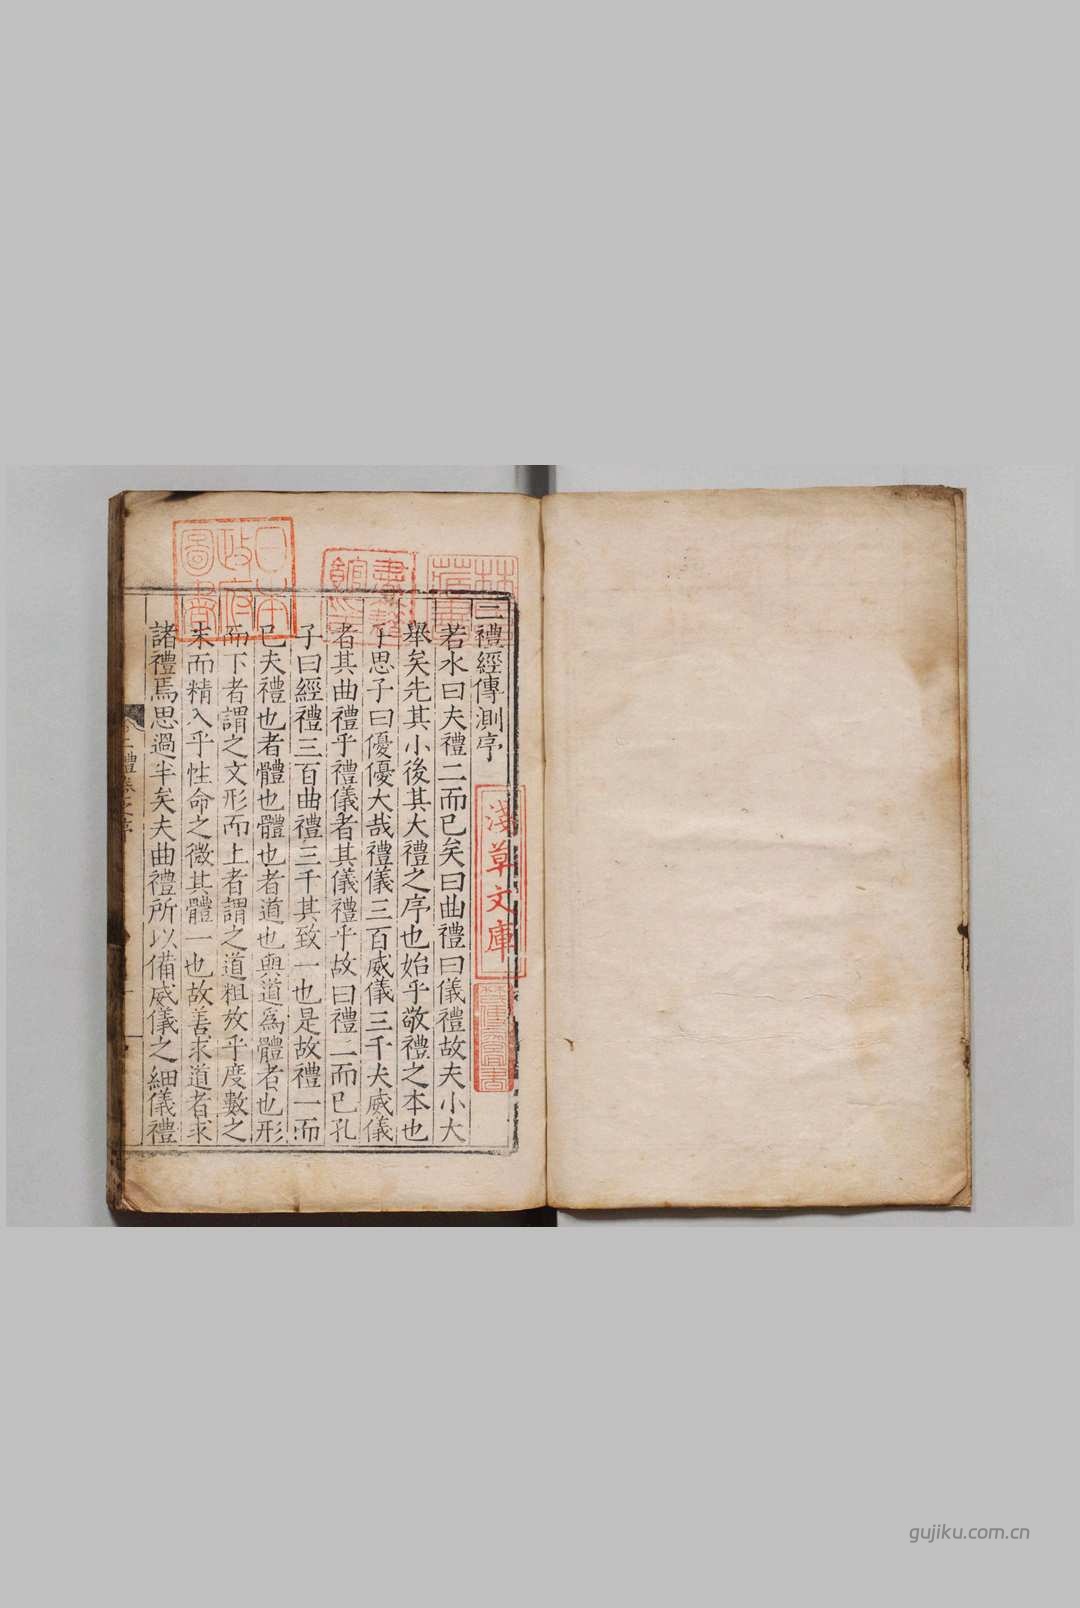 二禮經傳測序
若水曰夫禮二而已矣曰曲禮曰儀禮故夫小大
舉矣先其小後其大禮之序也始乎敬禮之本也
子思子曰優優大哉禮儀三百威儀三千夫威儀
者其曲禮乎禮儀者其儀禮乎故曰禮二而已孔
子曰經禮三百曲禮三千其致一也是故禮一而
已夫禮也者體也體也者道也與道爲體者也形
而下者謂之文形而上者謂之道粗效乎度數之
末而精入乎性命之微其體一也故善求道者求
諸禮焉思過半矣夫曲禮所以備威儀之細儀禮
淺草文庫
日本政府圖書
gujiku.com.cn